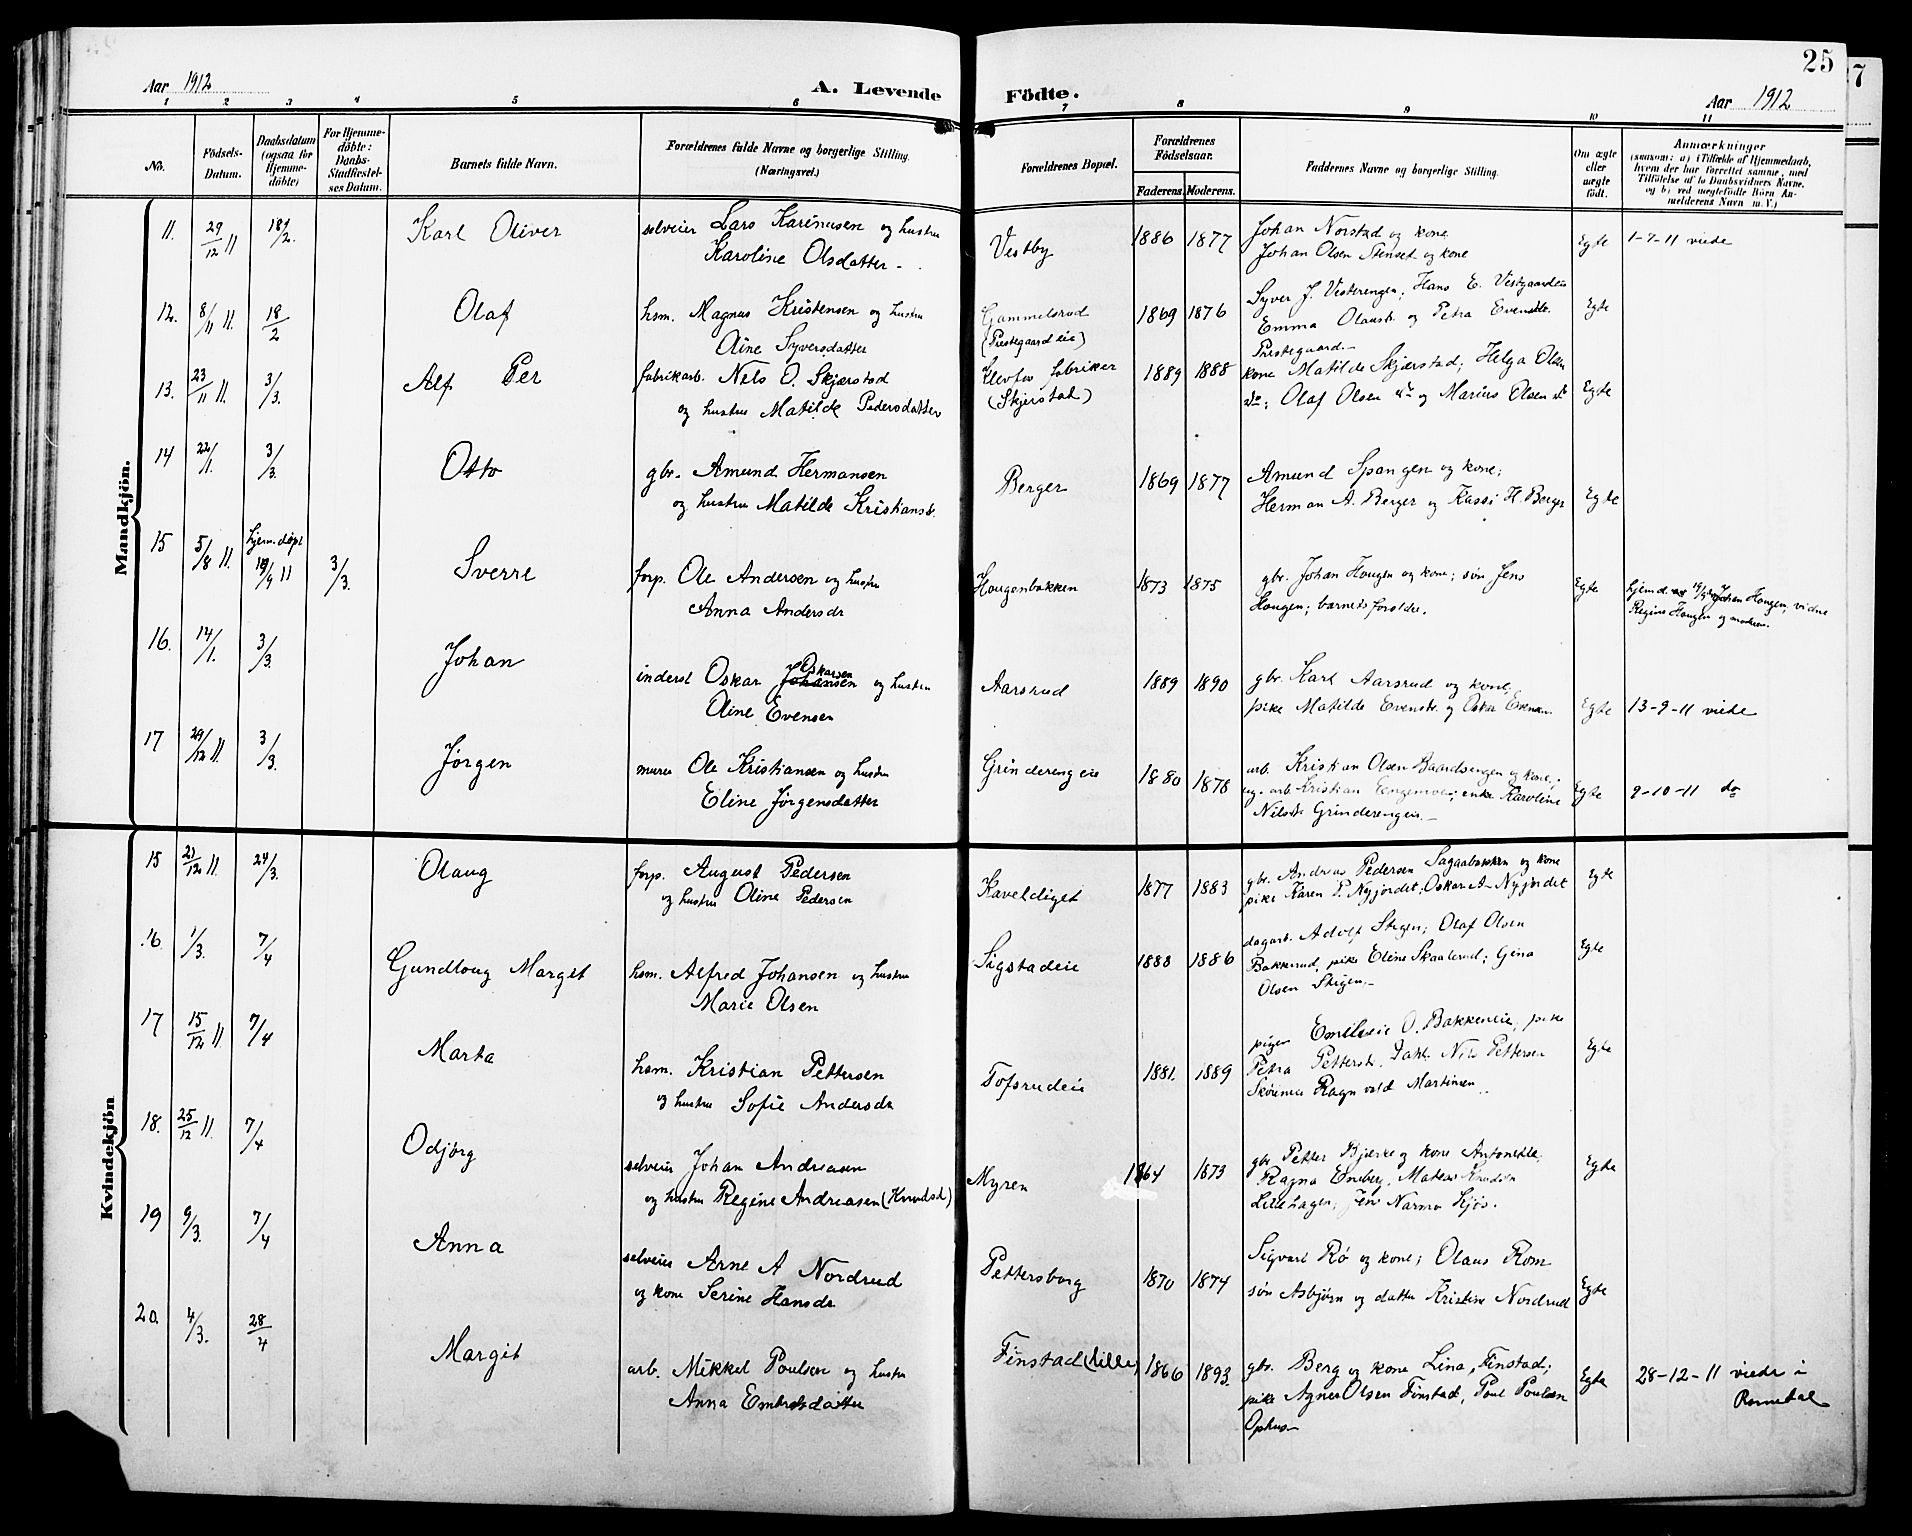 25
7
Aar 1912
A. Levende Födte.
Aar 1912
1 2 3 4 5 6 7 8 9 10 11
No.
Födsels-Datum.
Daabsdatum (ogsaa for Hjemme-döbte)
For Hjemme-döbte: Daabs-Stadfæstel-ses Datum.
Barnets fulde Navn.
Forældrenes fulde Navne og borgerlige Stilling. (Næringsvei.)
Forældrenes Bopæl.
Forældrenes Födselsaar.
Faderens. Moderens.
Faddernes Navne og borgerlige Stilling.
Om ægte eller uægte födt.
Anmærkninger
(saasom: a) i Tilfælde af Hjemmedaab, hvem der har forrettet samme, med Tilföielse af to Daabsvidners Navne, og b) ved uægtefödte Börn Anmelderens Navn m. V.)
Mandkjön.
11. 29/12 11 18/2. Karl Oliver selveier Lars Karinusen og hustru Vestby 1886 1877 Johan Norstad og kone Egte 1-7-11 viede
Karoline Olsdatter - Johan Olsen Stenset og kone
12. 8/11 11. 18/2 Olaf hsm. Magnus Kristensen og hustru Gammelsrud 1869 1876 Syver J. Vesterengen; Hans E. Vestgaardeie Egte
Oline Syversdatter (Prestegaard eie) Emma Olausdr. og Petra Evensdtr.
Prestegaard.-
13. 23/11 11. 3/3. Alf Per fabrikarb. Nils O. Skjærstad Klevfos fabriker 1889 1888 kone Matilde Skjærstad; Helga Olsen Egte
og hustru Matilde Pedersdatter (Skjerstad) do; Olaf Olsen do og Marius Olsen do
14 22/1. 3/3. Otto gbr. Amund Hermansen Berger 1869 1877 Amund Spangen og kone; Egte
og hustru Matilde Kristiansdr. Herman A. Berger og Kassi H. Berger
15 5/8 11. hjem.døpt 19/9 11 3/3. Sverre forp. Ole Andersen og hustru Hougenbakken 1873 1875 gbr. Johan Hougen og kone; søn Jens Egte hjemd. 19/9 Johan Hougen, vidne
Anna Andersdr Hougen; barnets forældre. Regine Hougen og moderen.
16. 14/1. 3/3. Johan inderst Oskar Johansen Oskarsen og hustru Aarsrud 1889 1890 gbr. Karl Aarsrud og kone, Egte 13-9-11 viede
Oline Evensen pike Matilde Evensdr. og Oskar Evensen.
17 29/12 11. 3/3. Jørgen murer Ole Kristiansen og hustru Grinderengeie 1880 1878 arb. Kristian Olsen Baardsengen og kone; Egte 9-10-11 do
Eline Jørgensdatter ug. arb. Kristian Engemoe; enke Karoline
Nilsdr. Grinderengeie.-
Kvindekjön
15 21/12 11. 24/3. Olaug forp. August Pedersen Kaveldiget 1877 1883 gbr. Andreas Pedersen Sagaabakken og kone Egte
og hustru Oline Pedersen pike Karen P. Nyjordet; Oskar A. Nyjordet
16. 1/3. 7/4 Gundloug Margit hsm. Alfred Johansen og hustru Sigstadeie 1888 1886 dagarb. Adolf Stigen; Olaf Olsen Egte
Marie Olsen Bakkerud, pike Eline Skaalerud; Gina
Olsen Stigen.-
17 15/12 11 7/4 Marta hsm. Kristian Pettersen Tofsrudeie 1881. 1889 pigen Emilie O. Bakkeneie, pike Egte
og hustru Sofie Andersdr Petra Pettersdr. Nils Pettersen
Ragnvald Martinsen
18. 25/12 11. 7/4 Odjørg selveier Johan Andreasen Myren 1864 1873 gbr. Petter Bjerke og kone Antonette, Egte
og hustru Regine Andreasen (Knudsd) Ragna Eneberg, Mateus Knudsen
Lillehagen, Jens Narmo
19 9/3. 7/4 Anna selveier Arne A Nordrud Pettersborg 1870 1874 Sigvart Rø og kone; Olaus Rom Egte
og kone Serine Hansdr søn Asbjørn og datter Kristine Nordrud
20. 4/3. 28/4 Margit arb. Mikkel Poulsen og hustru Finstad (lille) 1866 1893. gbr. Berg og kone Lina, Finstad; Egte 28-12-11 viede i
Anna Embretsdatter pike Agnes Olsen Finstad, Poul Poulsen Romedal
Ophus-